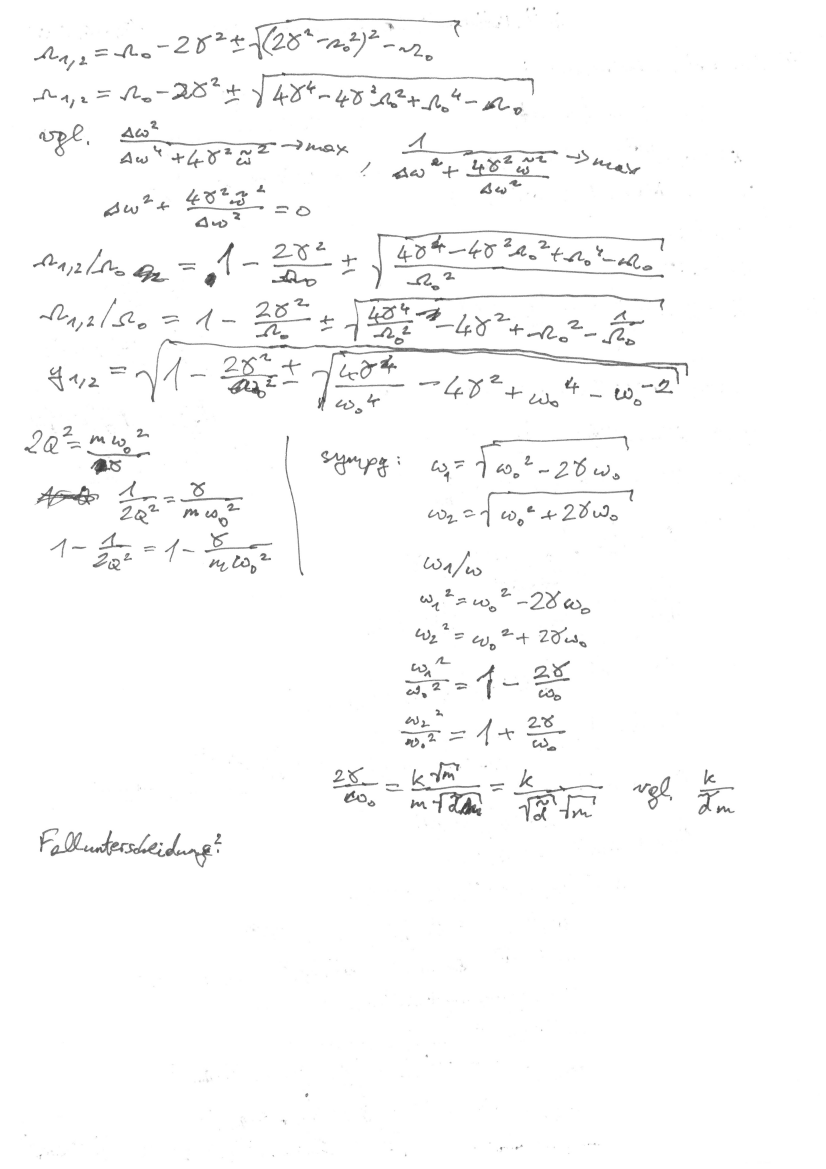 Ω₁,₂ = Ω₀ - 2γ² ± √((2γ² - Ω₀²)² - Ω₀)
Ω₁,₂ = Ω₀ - 2γ² ± √(4γ⁴ - 4γ²Ω₀² + Ω₀⁴ - Ω₀)
vgl. Δω²/(Δω⁴ + 4γ²ω̃²) → max , 1/(Δω² + 4γ²ω̃²/Δω²) → max
Δω² + 4γ²ω̃²/Δω² = 0
Ω₁,₂/Ω₀ = 1 - 2γ²/Ω₀ ± √((4γ⁴ - 4γ²Ω₀² + Ω₀⁴ - Ω₀)/Ω₀²)
Ω₁,₂/Ω₀ = 1 - 2γ²/Ω₀ ± √(4γ⁴/Ω₀² - 4γ² + Ω₀² - 1/Ω₀)
y₁,₂ = √(1 - 2γ²/ω₀² ± √(4γ⁴/ω₀⁴ - 4γ² + ω₀⁴ - ω₀⁻²))
2Q² = mω₀²/γ
1/2Q² = γ/mω₀²
1 - 1/2Q² = 1 - γ/mω₀²
sympy: ω₁ = √(ω₀² - 2γω₀)
ω₂ = √(ω₀² + 2γω₀)
ω₁/ω
ω₁² = ω₀² - 2γω₀
ω₂² = ω₀² + 2γω₀
ω₁²/ω₀² = 1 - 2γ/ω₀
ω₂²/ω₀² = 1 + 2γ/ω₀
2γ/ω₀ = k√m/(m√d̃) = k/(√d̃ √m) vgl. k/d̃m
Fallunterscheidung?